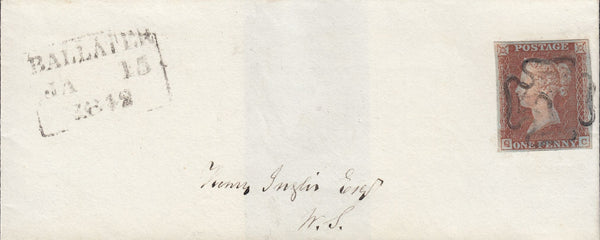 BALLATER
JA 15
1842
POSTAGE
S C
ONE PENNY
Inglis Esqr
W. S.